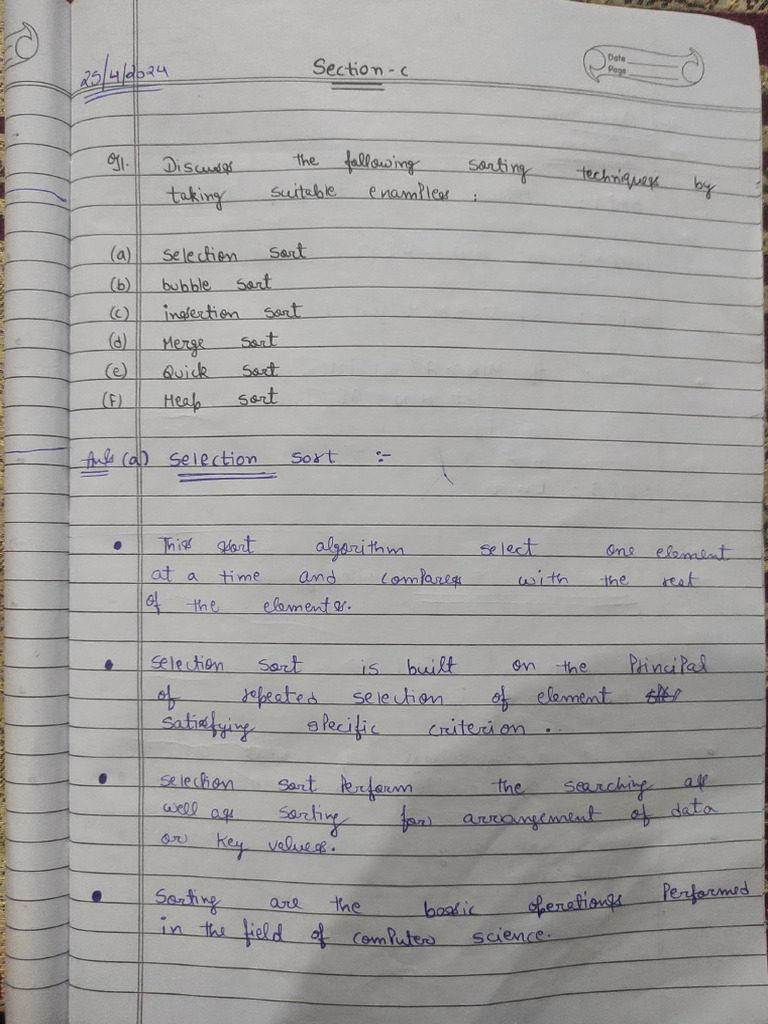 25/4/2024
Section-c
Date
Page
Q1. Discuss the following sorting techniques by
taking suitable enamples :
(a) selection sort
(b) bubble sort
(c) insertion sort
(d) Merge sort
(e) Quick sort
(F) Heap sort
Ans (a) selection sort :-
• This sort algorithm select one element
at a time and compares with the rest
of the elements.
• selection sort is built on the Principal
of repeated selection of element
satisfying specific criterion .
• selection sort Perform the searching as
well as sorting for arrangement of data
or key values.
• Sorting are the basic operations Performed
in the field of computer science.